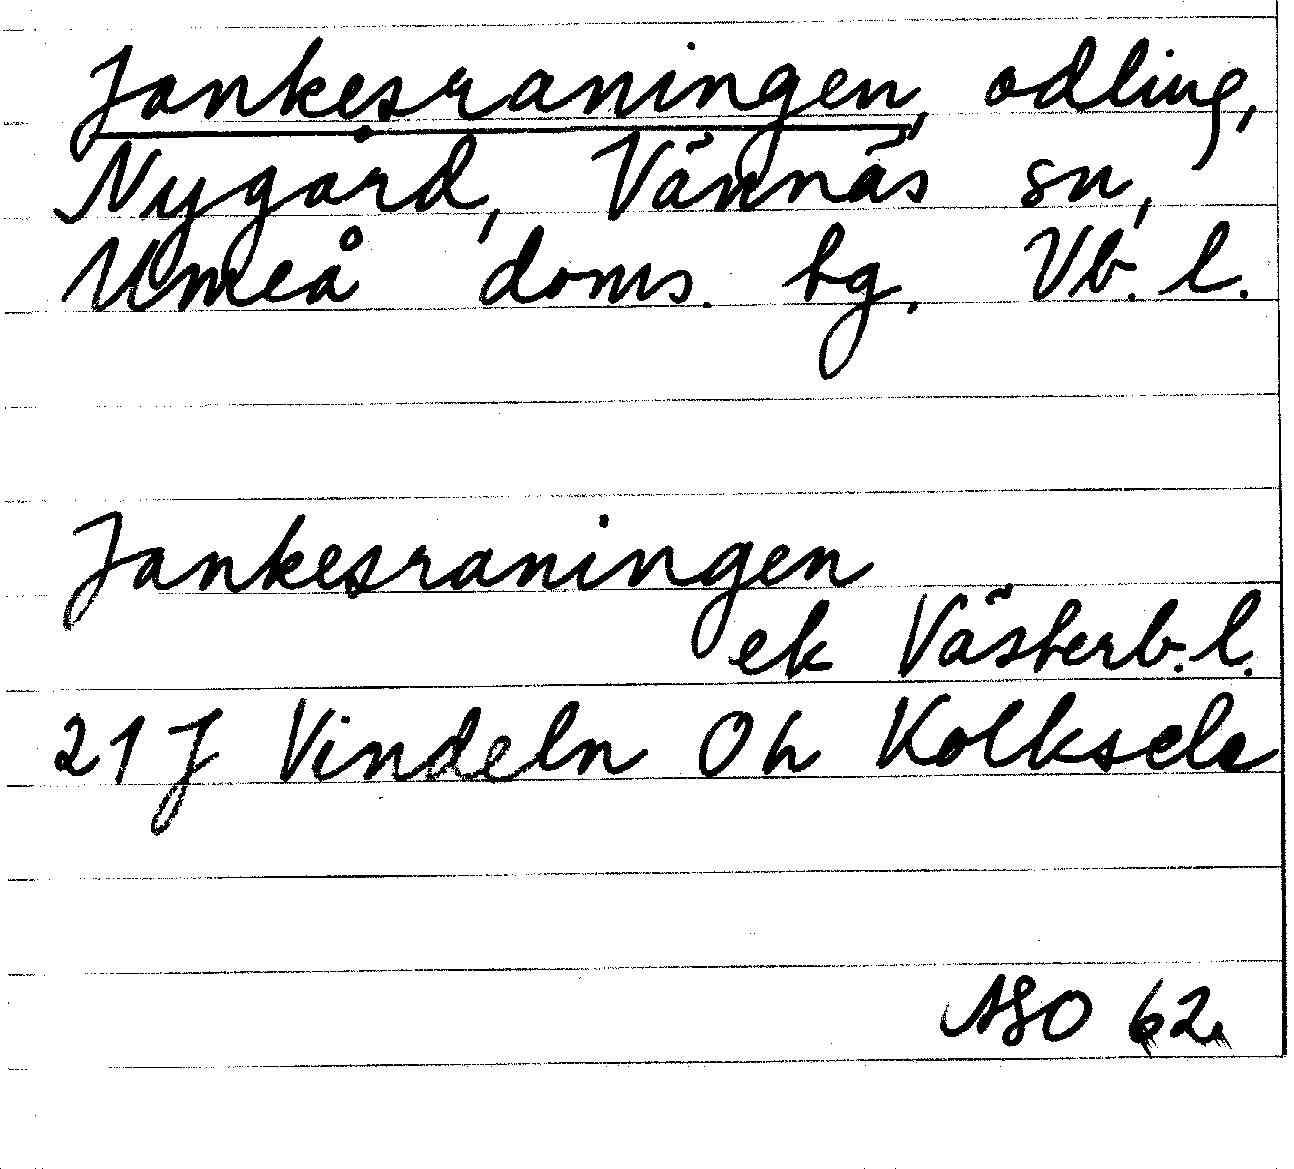 Jankesraningen, odling,
Nygård, Vännäs sn,
Umeå doms. tg. Vb. l.
Jankesraningen
ek Västerb. l.
21 J Vindeln Oh Kolksele
ASO 62.